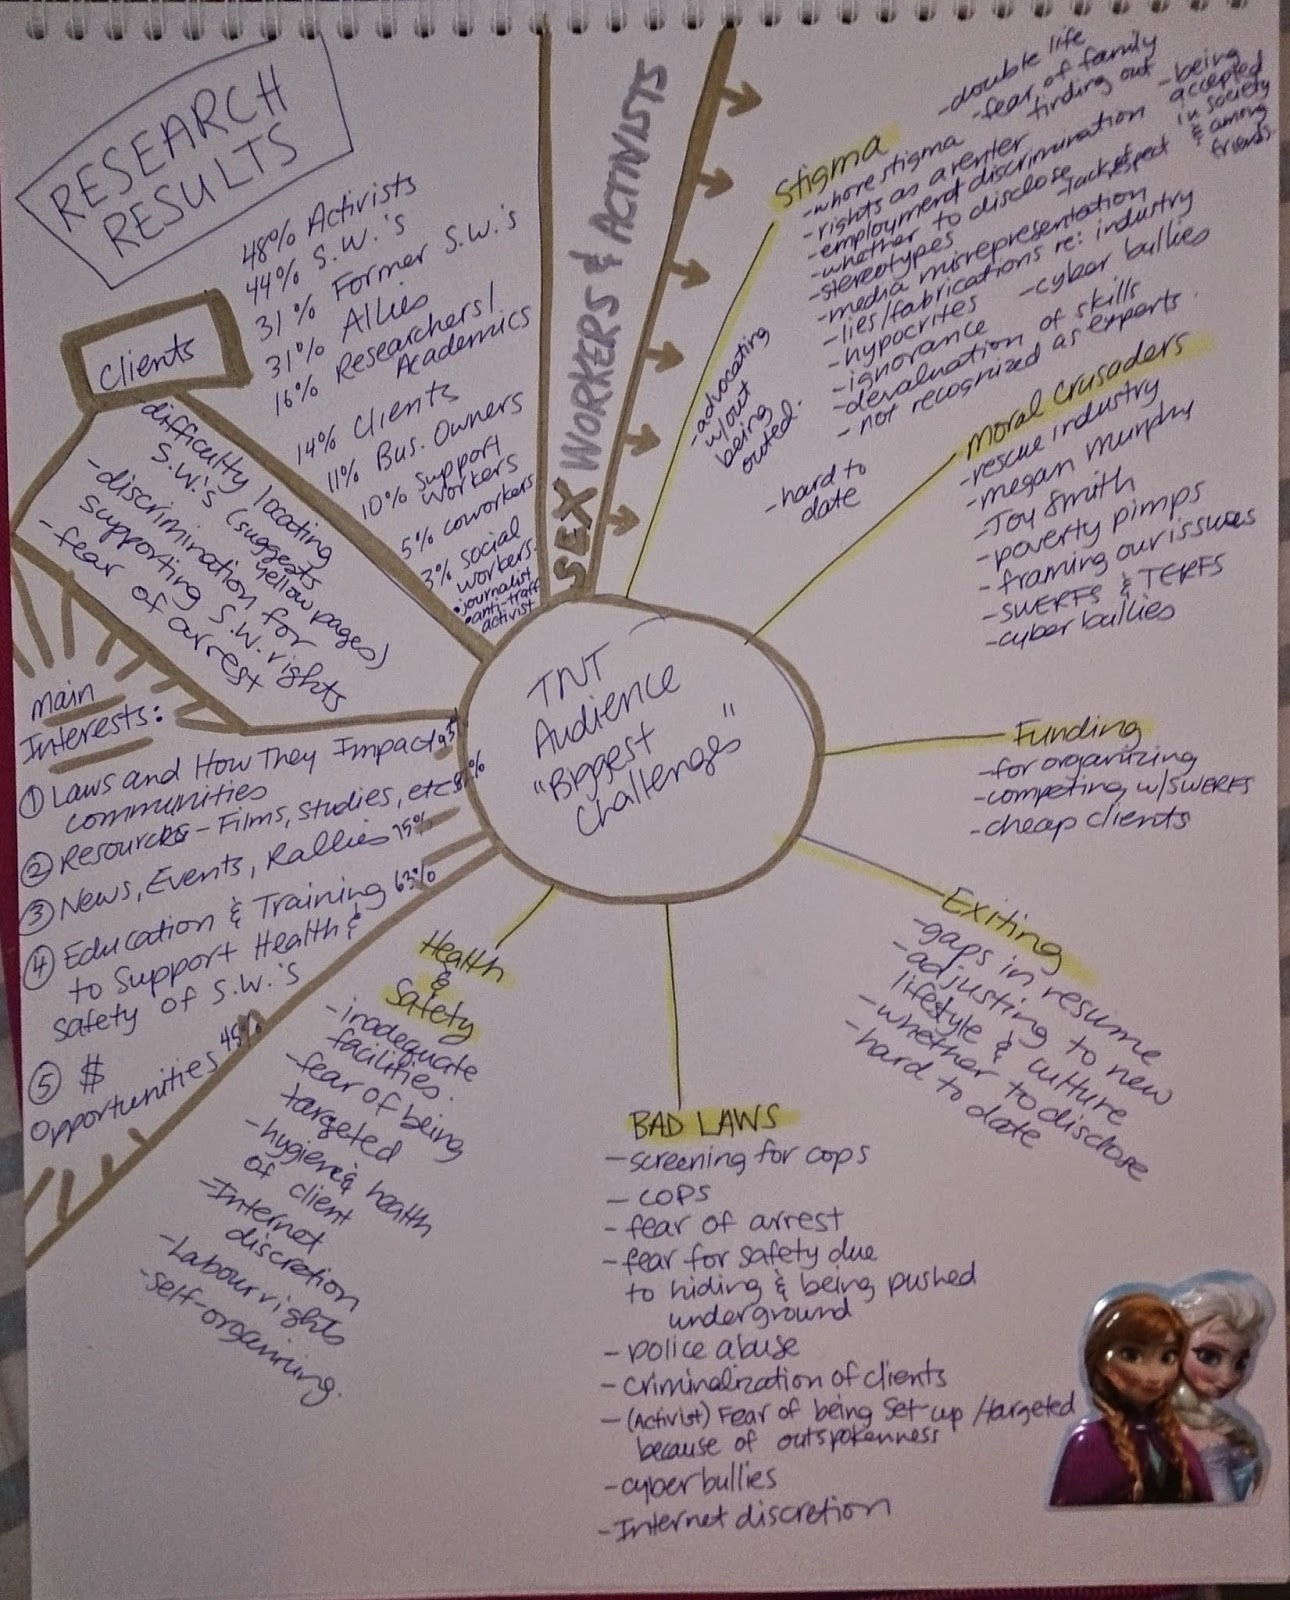 RESEARCH
RESULTS
48% Activists
44% S.W.'s
31% Former S.W.'s
31% Allies
16% Researchers/
Academics
14% Clients
11% Bus. Owners
10% Support
workers
5% coworkers
3% social
workers.
• journalist
• anti-traff
activist
Clients
-difficulty locating
S.W.'s (suggests
yellow pages)
-discrimination for
supporting S.W. rights
-fear of arrest
SEX WORKERS & ACTIVISTS
TNT
Audience
"Biggest
Challenges"
Stigma
-double life
-fear of family
finding out
-being
accepted
in society
& among
friends
-whore stigma
-rights as a renter
-employment discrimination
-whether to disclose
-lack of respect
-stereotypes
-media misrepresentation
-lies/fabrications re: industry
-hypocrites
-cyber bullies
-ignorance
-devaluation of skills
-not recognized as experts.
-advocating
w/out
being
outed.
-hard to
date
Moral Crusaders
-rescue industry
-megan murphy
-Joy Smith
-poverty pimps
-framing our issues
-SWERFS & TERFS
-cyber bullies
Funding
-for organizing
-competing w/SWERFS
-cheap clients
Exiting
-gaps in resume
-adjusting to new
lifestyle & culture
-whether to disclose
-hard to date
BAD LAWS
-screening for cops
-COPS
-fear of arrest
-fear for safety due
to hiding & being pushed
underground
-police abuse
-criminalization of clients
-(Activist) Fear of being set-up/targeted
because of outspokenness
-cyber bullies
-Internet discretion
Health
&
Safety
-inadequate
facilities.
-fear of being
targeted
-hygiene & health
of client
-Internet
discretion
-Labour rights
-self-organizing.
Main
Interests:
① Laws and How They Impact
communities
② Resources - Films, Studies, etc
③ News, Events, Rallies 75%
④ Education & Training 63%
to Support Health &
Safety of S.W.'s
⑤ $
Opportunities 45%